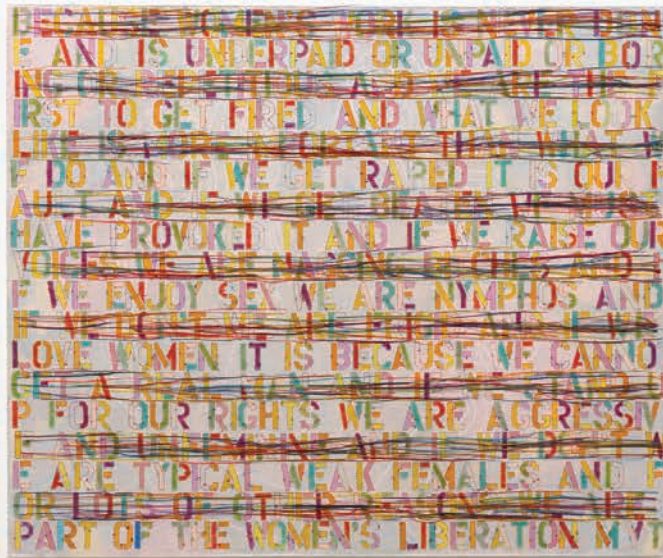 BECAUSE WOMEN'S WORK IS NEVER DON
E AND IS UNDERPAID OR UNPAID OR BOR
ING OR REPETITIOUS AND WE ARE THE F
IRST TO GET FIRED AND WHAT WE LOOK
LIKE IS MORE IMPORTANT THAN WHAT W
E DO AND IF WE GET RAPED IT IS OUR F
AULT AND IF WE GET BEATEN WE MUST
HAVE PROVOKED IT AND IF WE RAISE OUR
VOICES WE ARE NAGGING BITCHES AND I
F WE ENJOY SEX WE ARE NYMPHOS AND
IF WE DON'T WE ARE FRIGID AND IF WE
LOVE WOMEN IT IS BECAUSE WE CANNO
GET A REAL MAN AND IF WE STAND U
P FOR OUR RIGHTS WE ARE AGGRESSIV
E AND UNFEMININE AND IF WE DON'T W
E ARE TYPICAL WEAK FEMALES AND F
OR LOTS OF OTHER REASONS WE ARE
PART OF THE WOMEN'S LIBERATION MVT